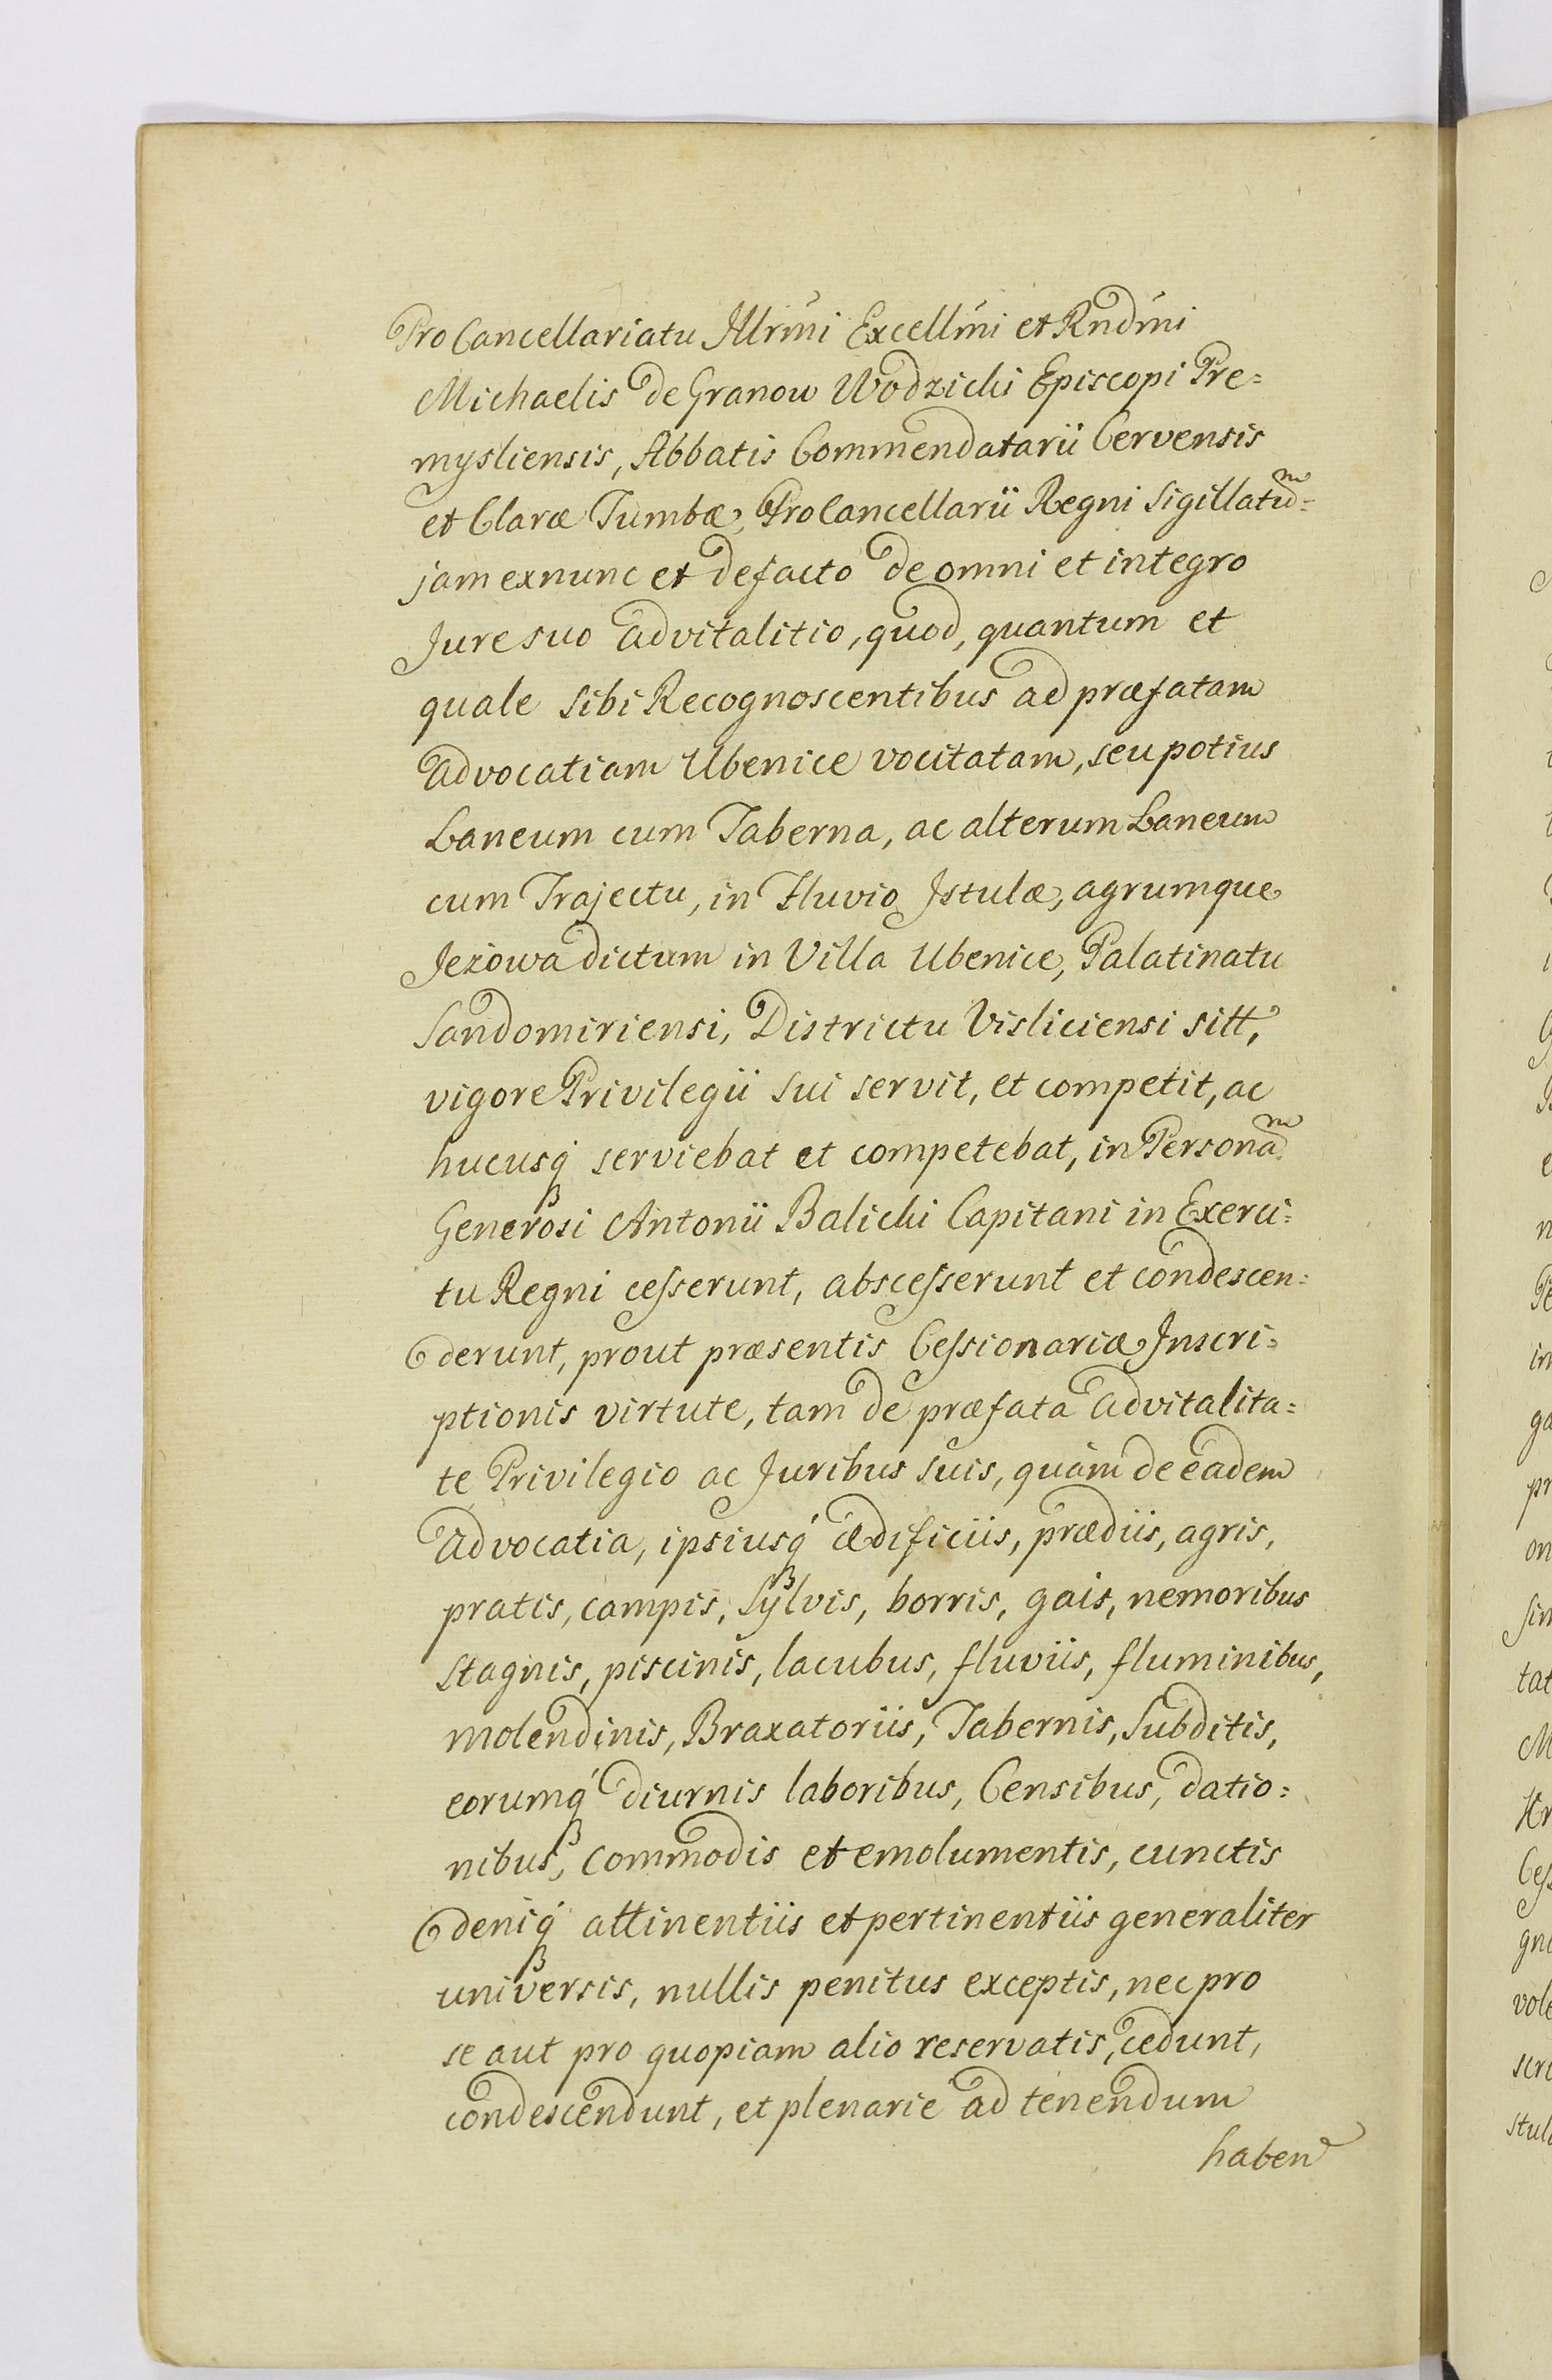 ProCancellariatu Illrmi Excellmi et Rndmi
Michaelis de Granow Wodzicki Episcopi Pre=
mysliensis, Abbatis Commendatarii Cervensis
et Claræ Tumbæ, ProCancellarii Regni Sigillatum=
jam exnunc et defacto de omni et integro
Jure suo advitalitio, quod, quantum et
quale sibi Recognoscentibus ad præfatam
advocatiam Ubenice vocitatam, seu potius
Laneum cum Taberna, ac alterum Laneum
cum Trajectu, in Fluvio Istulæ, agrumque
Jezowa dictum in Villa Ubenice, Palatinatu
Sandomiriensi, Districtu Visliciensi sitt,
vigore Privilegii sui servit, et competit, ac
hucusq́ serviebat et competebat, in Personam
Generosi Antonii Balicki Capitani in Exerci=
tu Regni cesserunt, abscesserunt et condescen=
derunt, prout præsentis Cessionariæ Inscri=
ptionis virtute, tam de præfata advitalita=
te Privilegio ac Juribus suis, quàm de eadem
advocatia, ipsiusq́ ædificiis, prædiis, agris,
pratis, campis, Sylvis, borris, gais, nemoribus
Stagnis, piscinis, lacubus, fluviis, fluminibus,
molendinis, Braxatoriis, Tabernis, Subditis,
eorumq́ diurnis laboribus, Censibus, datio=
nibus, commodis et emolumentis, cunctis
deniq́ attinentiis et pertinentiis generaliter
universis, nullis penitus exceptis, nec pro
se aut pro quopiam alio reservatis, cedunt,
condescendunt, et plenarie ad tenendum
haben